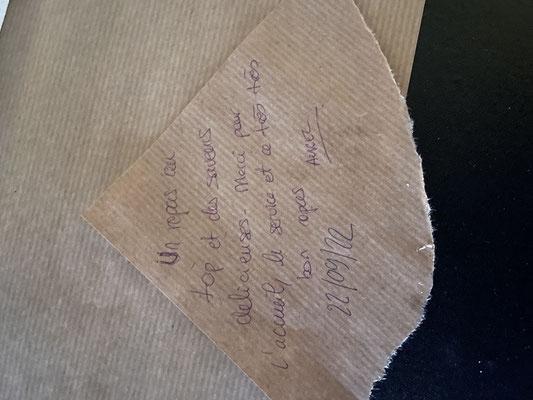 Un repas au
top et des saveurs
délicieuses. Merci pour
l'acceuil, le service et ce très très
bon repas
22/09/22